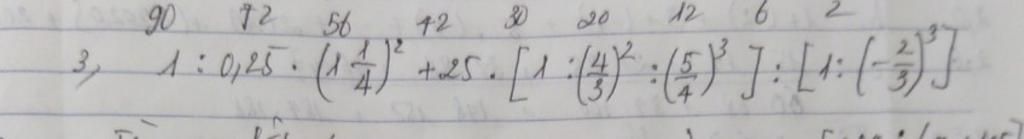 90 72 56 42 30 20 12 6 2
3, 1 : 0,25 · (1 1/4)² + 25 · [1 : (4/3)² : (5/4)³] : [1 : (-2/3)³]